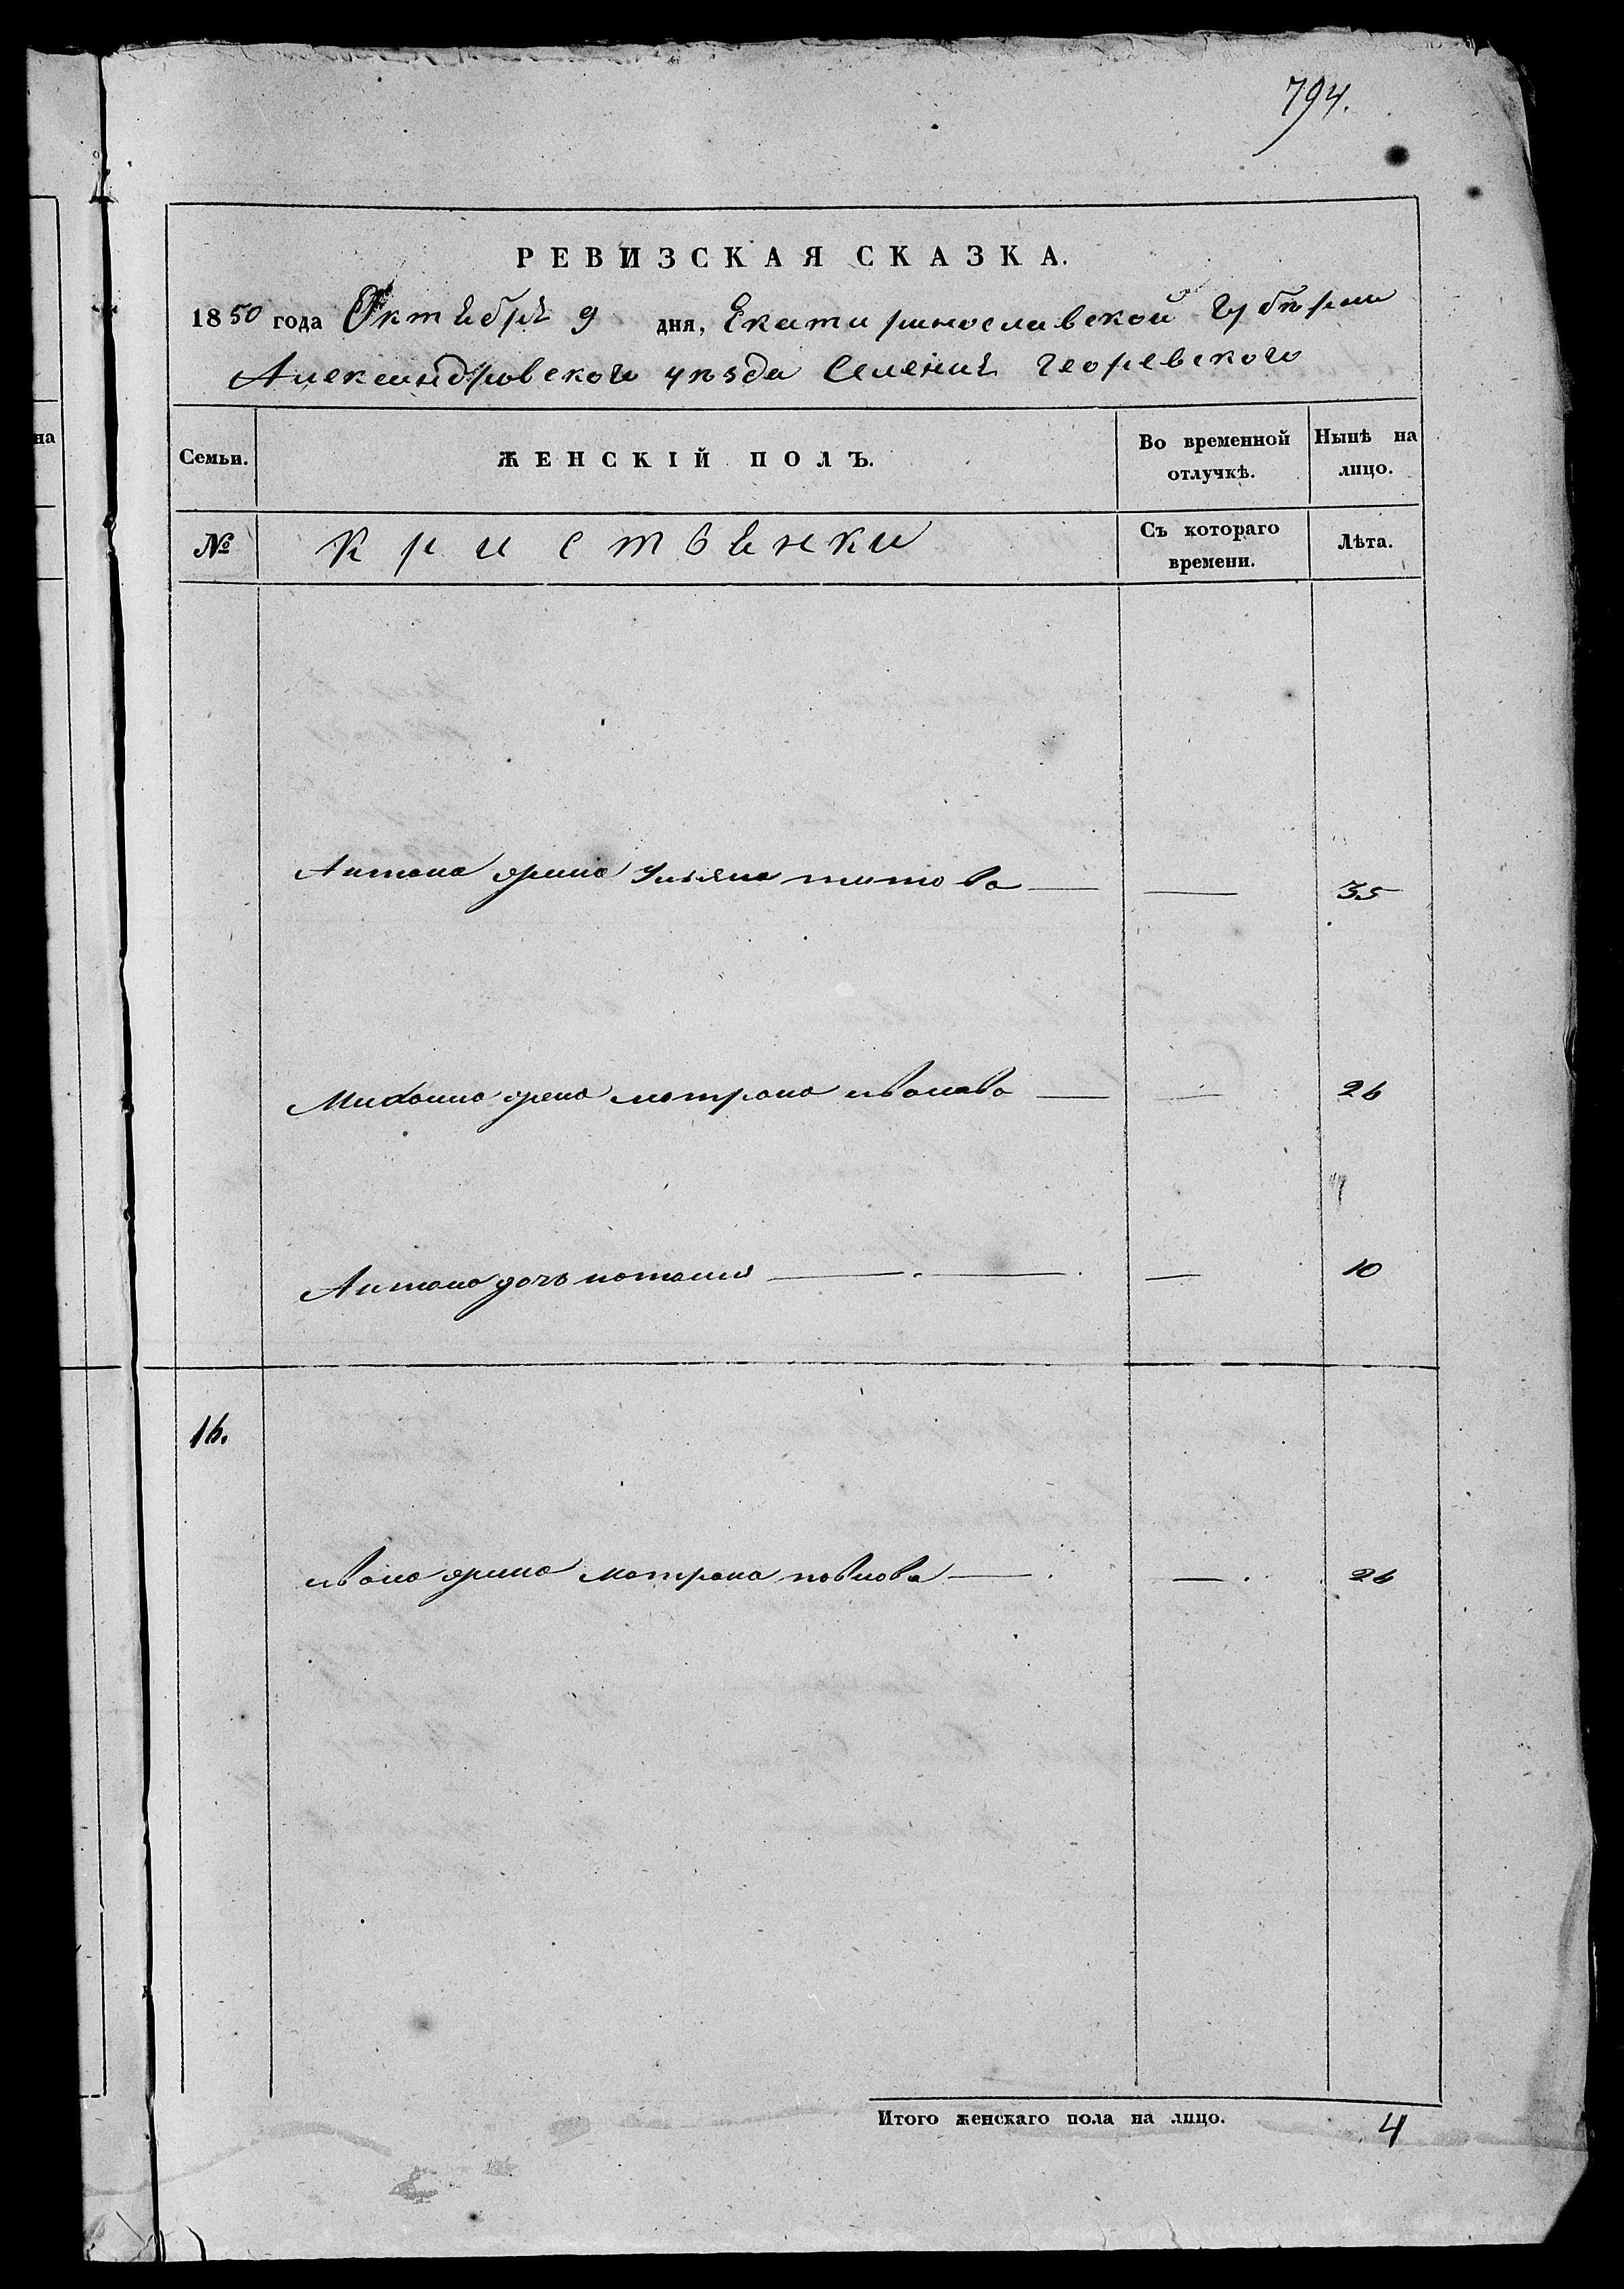 794.
РЕВИЗСКАЯ СКАЗКА.
1850 года Октября 9 дня, Екатириносливской Губѣрни
Александровского уѣзда Селения Георевского
на
Семьи. ЖЕНСКІЙ ПОЛЪ. Во временной отлучкѣ. Нынѣ на лицо.
№ Кристьянки Съ котораго времени. Лѣта.
Антона Ульяна титова — — 35
Михаила мотрона иванова — — 26
Антона дочь наталия — — 10
16.
ивана мотрона павлова — — 26
Итого женскаго пола на лицо. 4